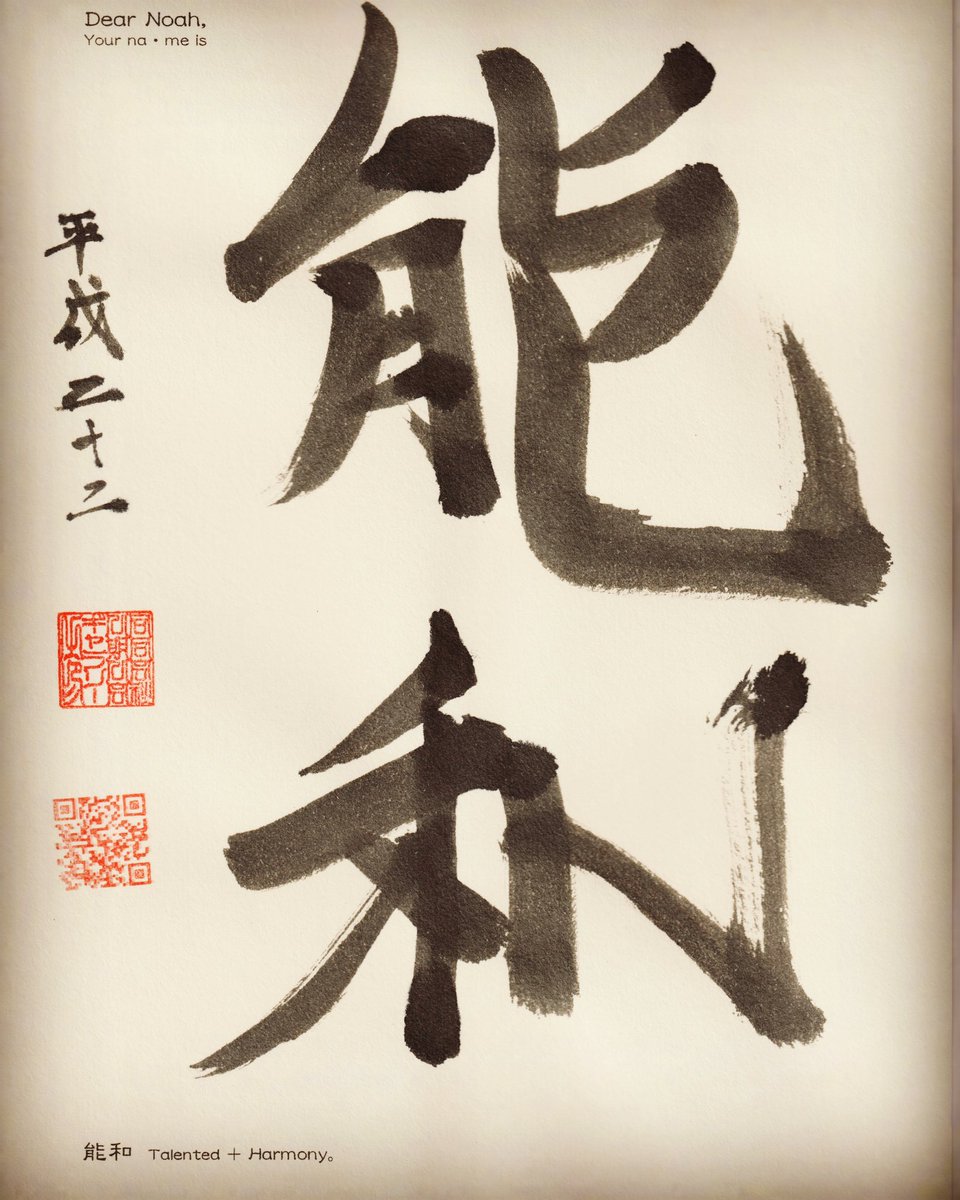 Dear Noah,
Your na・me is
能和
平成二十二
能和 Talented + Harmony。